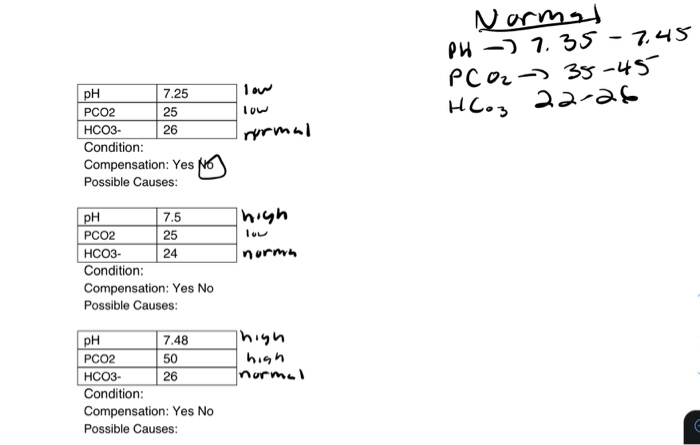 Normal
PH → 7.35 - 7.45
PCO2 → 35-45
HCO3 22-26
pH 7.25 low
PCO2 25 low
HCO3- 26 normal
Condition:
Compensation: Yes No
Possible Causes:
pH 7.5 high
PCO2 25 low
HCO3- 24 norma
Condition:
Compensation: Yes No
Possible Causes:
pH 7.48 high
PCO2 50 high
HCO3- 26 normal
Condition:
Compensation: Yes No
Possible Causes: